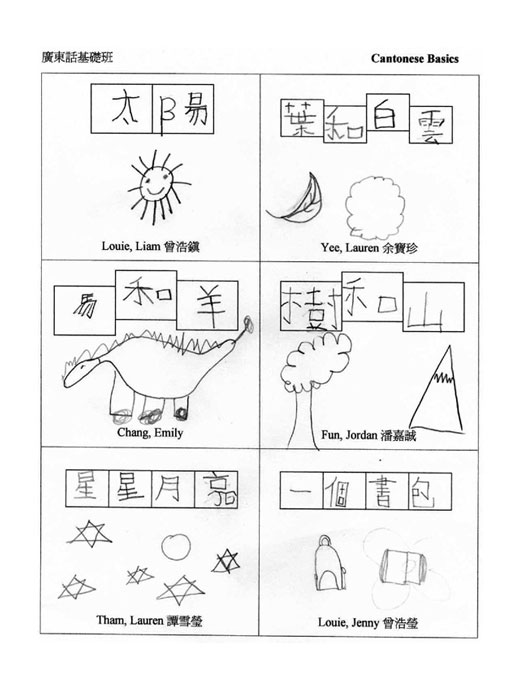 廣東話基礎班
Cantonese Basics
太陽
Louie, Liam 曾浩鎮
葉和白雲
Yee, Lauren 余寶珍
馬和羊
Chang, Emily
樹和山
Fun, Jordan 潘嘉誠
星星月亮
Tham, Lauren 譚雪瑩
一個書包
Louie, Jenny 曾浩瑩